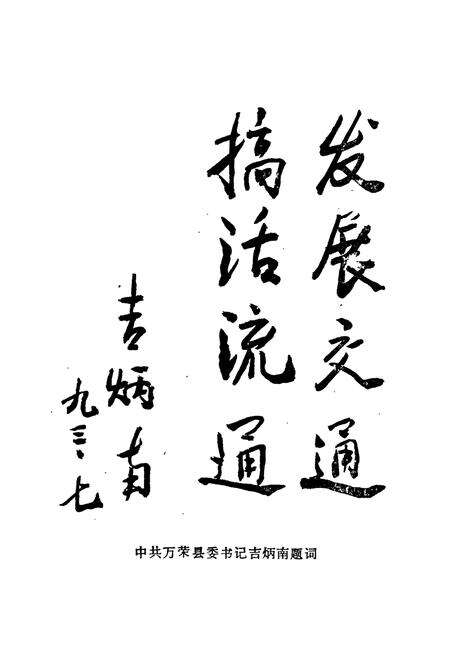 发展交通
搞活流通
吉炳南
九三、七
中共万荣县委书记吉炳南题词